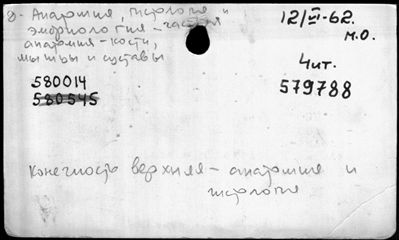 8- Анатомия, гистология и
эмбриология - частная
анатомия - кости,
мышцы и суставы
12/VI-62.
М.О.
580014
580545
Чит.
579788
Конечность верхняя - анатомия и
гистология